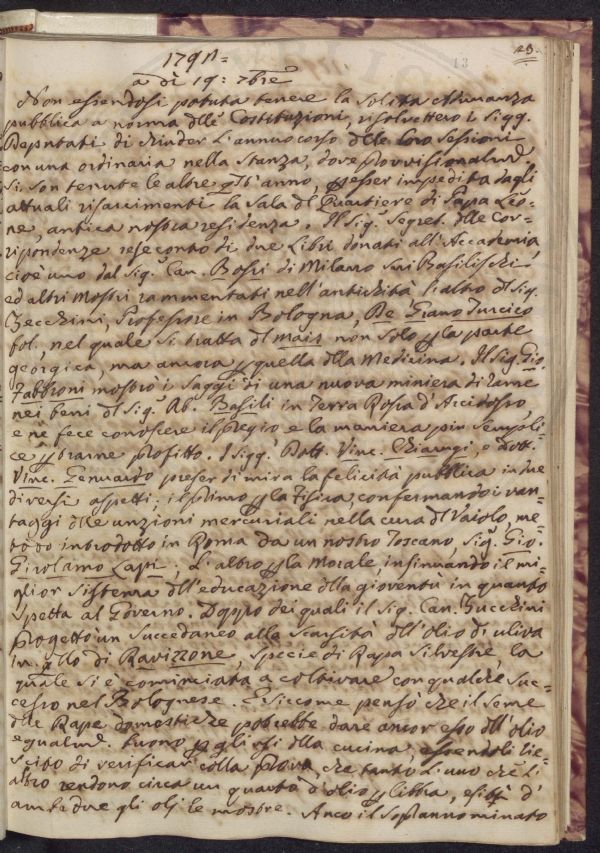 23.
13
1791=
a dì 19: 7bre
Non essendosi potuta tenere la solita Adunanza
pubblica a norma dlle Costituzioni, risolvettero i Sigg.
Deputati di chiuder l'annuo corso dlle loro sessioni
con una ordinaria nella stanza, dove provvisionalmte
si son tenute le altre qst'anno, p esser impedita dagli
attuali risarcimenti la sala dl Quartiere di Papa Leo=
ne, antica nostra residenza. Il Sigr. Segret. dlle Cor=
rispondenze rese conto di due Libri donati all'Accademia,
cioè uno dal Sigr. Can. Bossi di Milano sui Basilischi
ed altri Mostri rammentati nell'antichità l'altro dl Sigr.
Zecchini, Professore in Bologna, De Grano Turcico
fol., nel quale si tratta dl Mais non solo p la parte
georgica, ma ancora p quella dlla Medicina. Il Sig. Gio.
Fabbroni mostrò i saggi di una nuova miniera di rame
nei beni dl Sigr. Ab. Basili in Terra Rossa d'Arcidosso,
e ne fece conoscere il pregio e la maniera più sempli=
ce p trarne profitto. I Sigg. Dott. Vinc. Chiarugi, e Dott.
Vinc. Gennardo preser di mira la felicità pubblica in due
diversi aspetti; il primo p la Fisica, confermando i van=
taggi dlle unzioni mercuriali nella cura dl Vaiolo, me=
todo introdotto in Roma da un nostro Toscano, Sigr. Gio.
Girolamo Lapi: L'altro p la Morale insinuando il mi=
glior sistema dll'educazione dlla gioventù in quanto
spetta al Governo. Doppo dei quali il Sigr. Can. Zucchini
progettò un succedaneo alla scarsità dll'olio di uliva
in qllo di Ravizzone, specie di Rapa silvestre, la
quale si è cominciata a coltivare con qualche suc=
cesso nel Bolognese. E siccome pensò che il seme
dlle Rape domestiche potrebbe dare ancor esso dll'olio
egualmte buono p gli usi dlla cucina, essendoli rie=
scito di verificar colla prova, che tanto l'uno che l'
altro rendono circa un quarto d'olio p libbra, esibì d'
ambedue gli olj le mostre. Anco il soprannominato